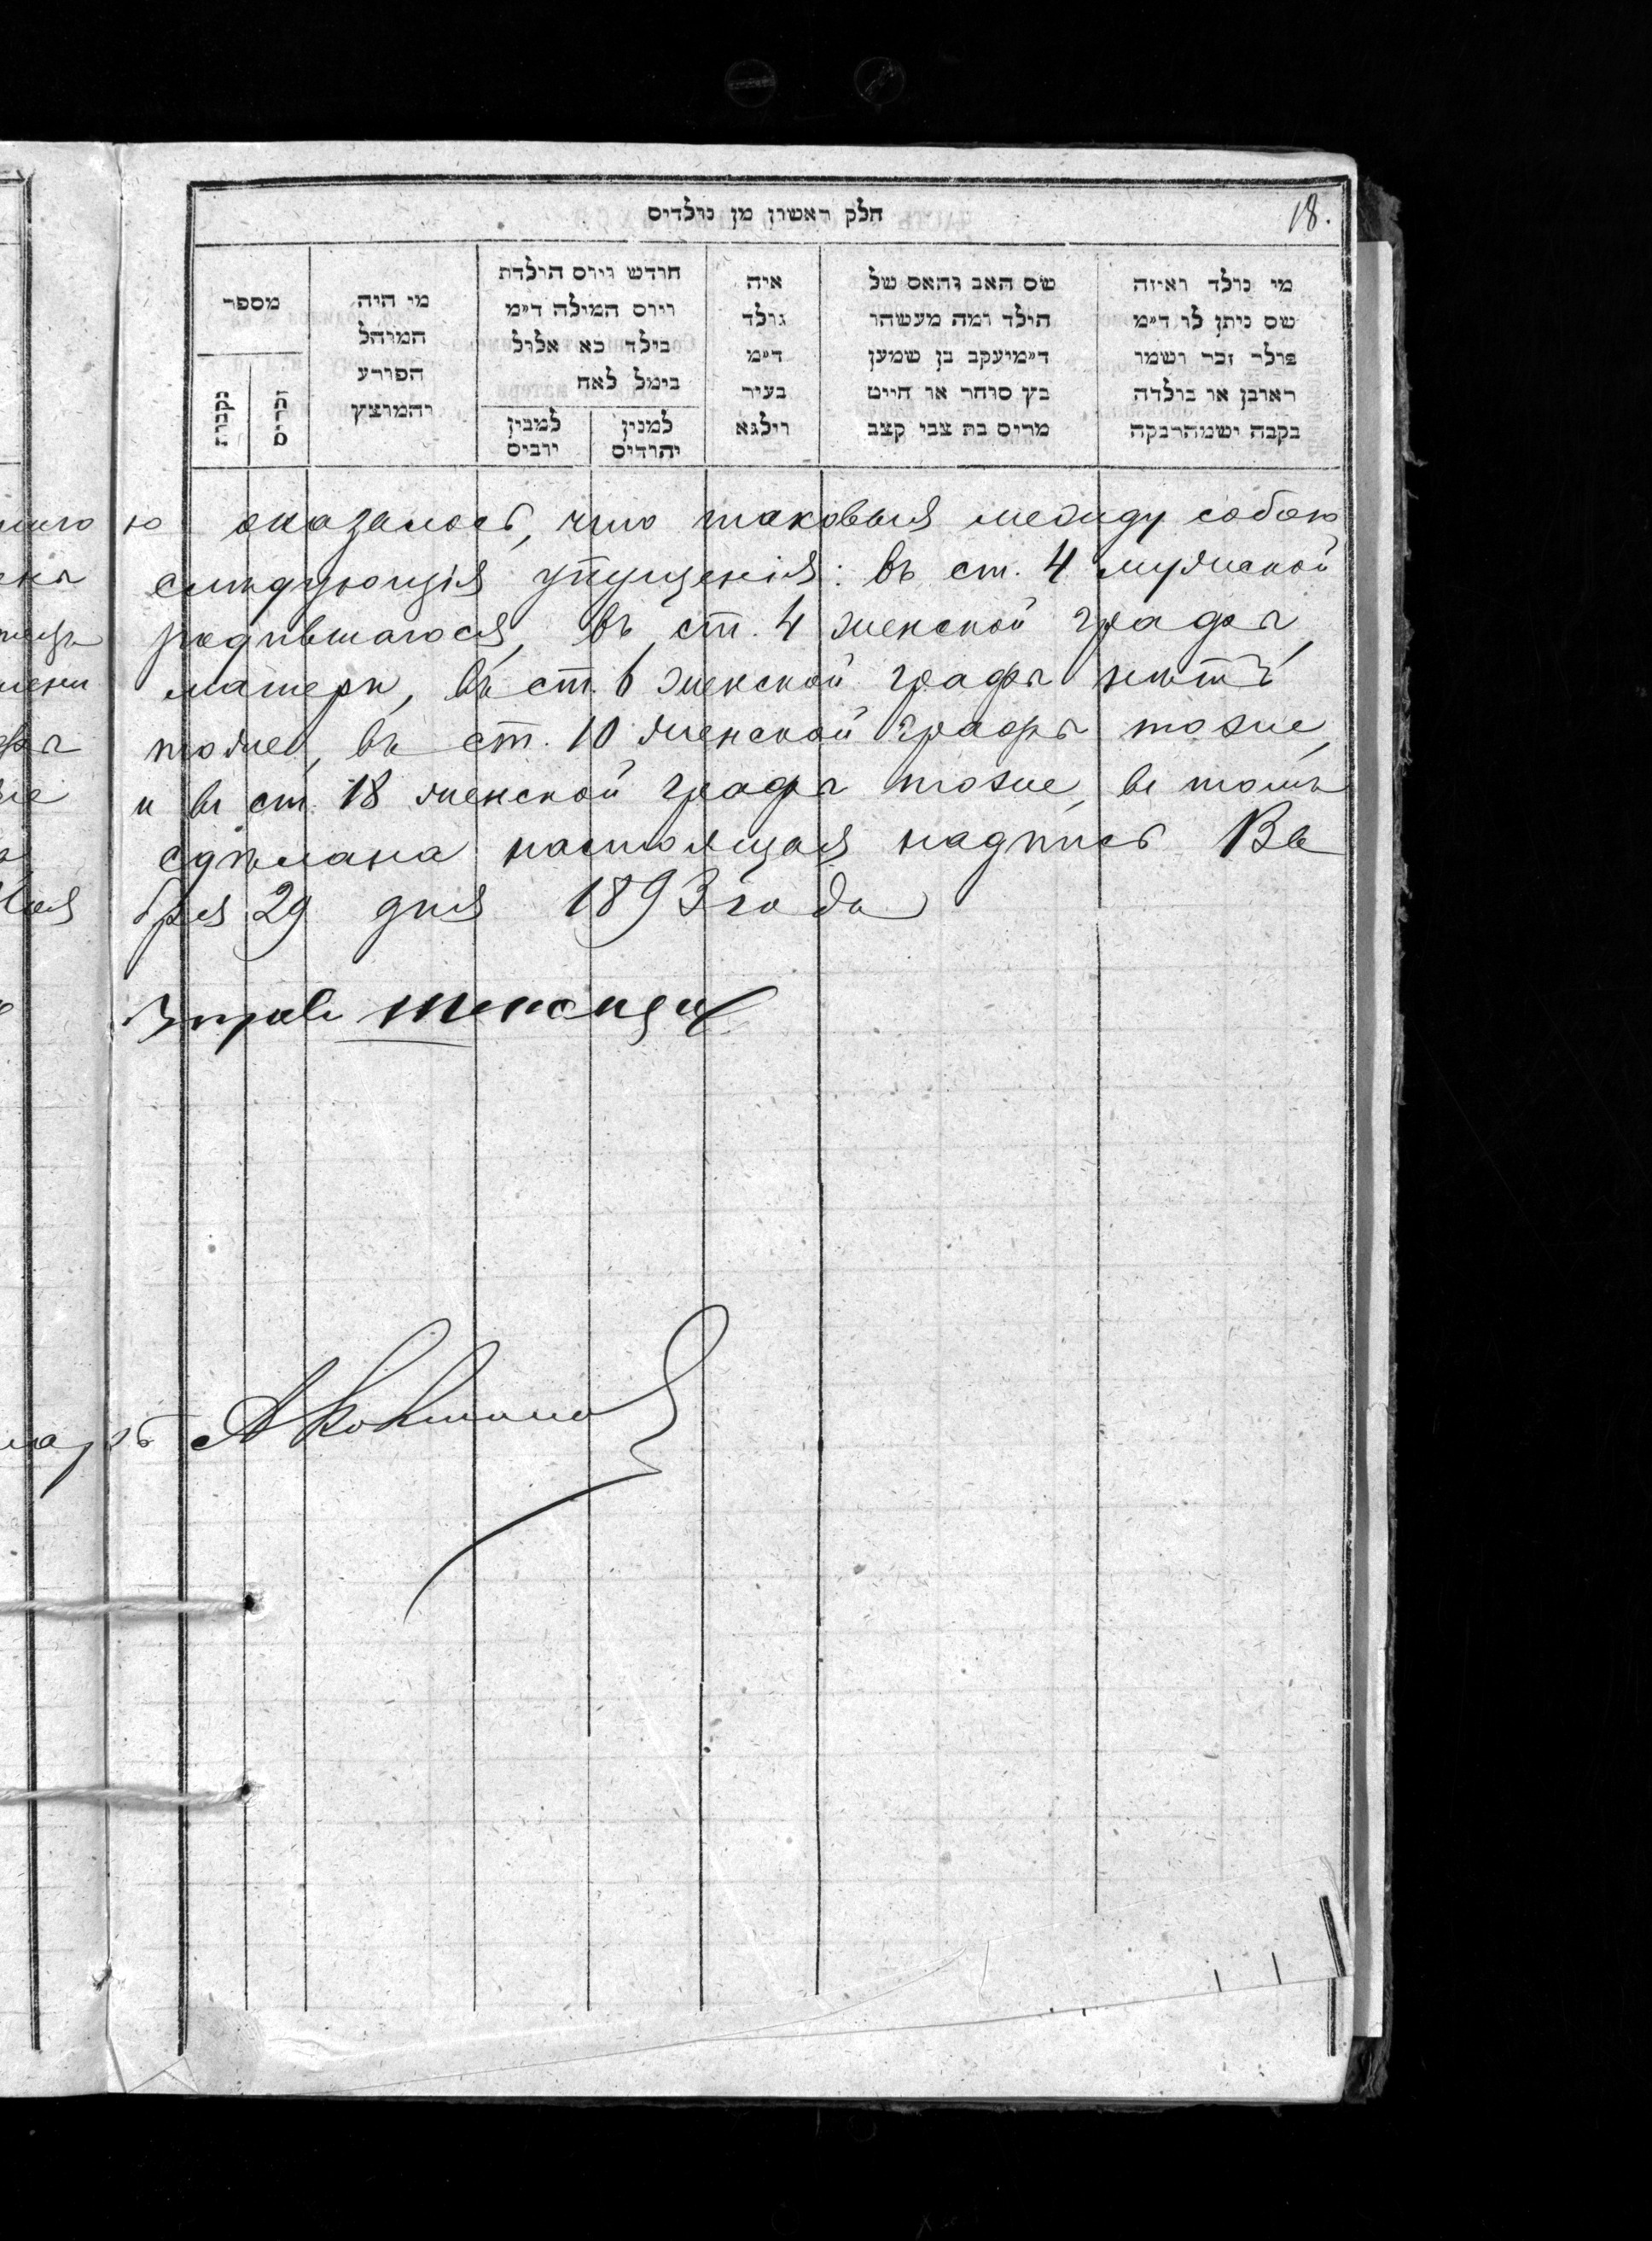 חלק ראשון מן נולדים
18.
מספר
זכרים
נקבות
מי היה
המוהל
הפורע
והמוצץ
חודש ויום הולדת
ויום המילה ד״מ
בילד כא אלול
בימל לאח
למנין
יהודים
למנין
יונים
איה
נולד
ד״מ
בעיר
ווילנא
שם האב והאם של
הילד ומה מעשהו
ד״מ יעקב בן שמען
כץ סוחר או חייט
מרים בת צבי קצב
מי נולד ואיזה
שם ניתן לו ד״מ
נולד זכר ושמו
ראובן או נולדה
נקבה ושמה רבקה
ю оказалось, что таковыя между собою
слѣдующія упущенія: въ ст. 4 мужской
родившагося, въ ст. 4 женской графѣ
матери, въ ст. 6 женской графѣ нѣтъ
тоже, въ ст. 10 женской графѣ тоже,
и въ ст. 18 женской графѣ тоже, въ томъ
сдѣлана настоящая надпись Въ
бря 29 дня 1893 года